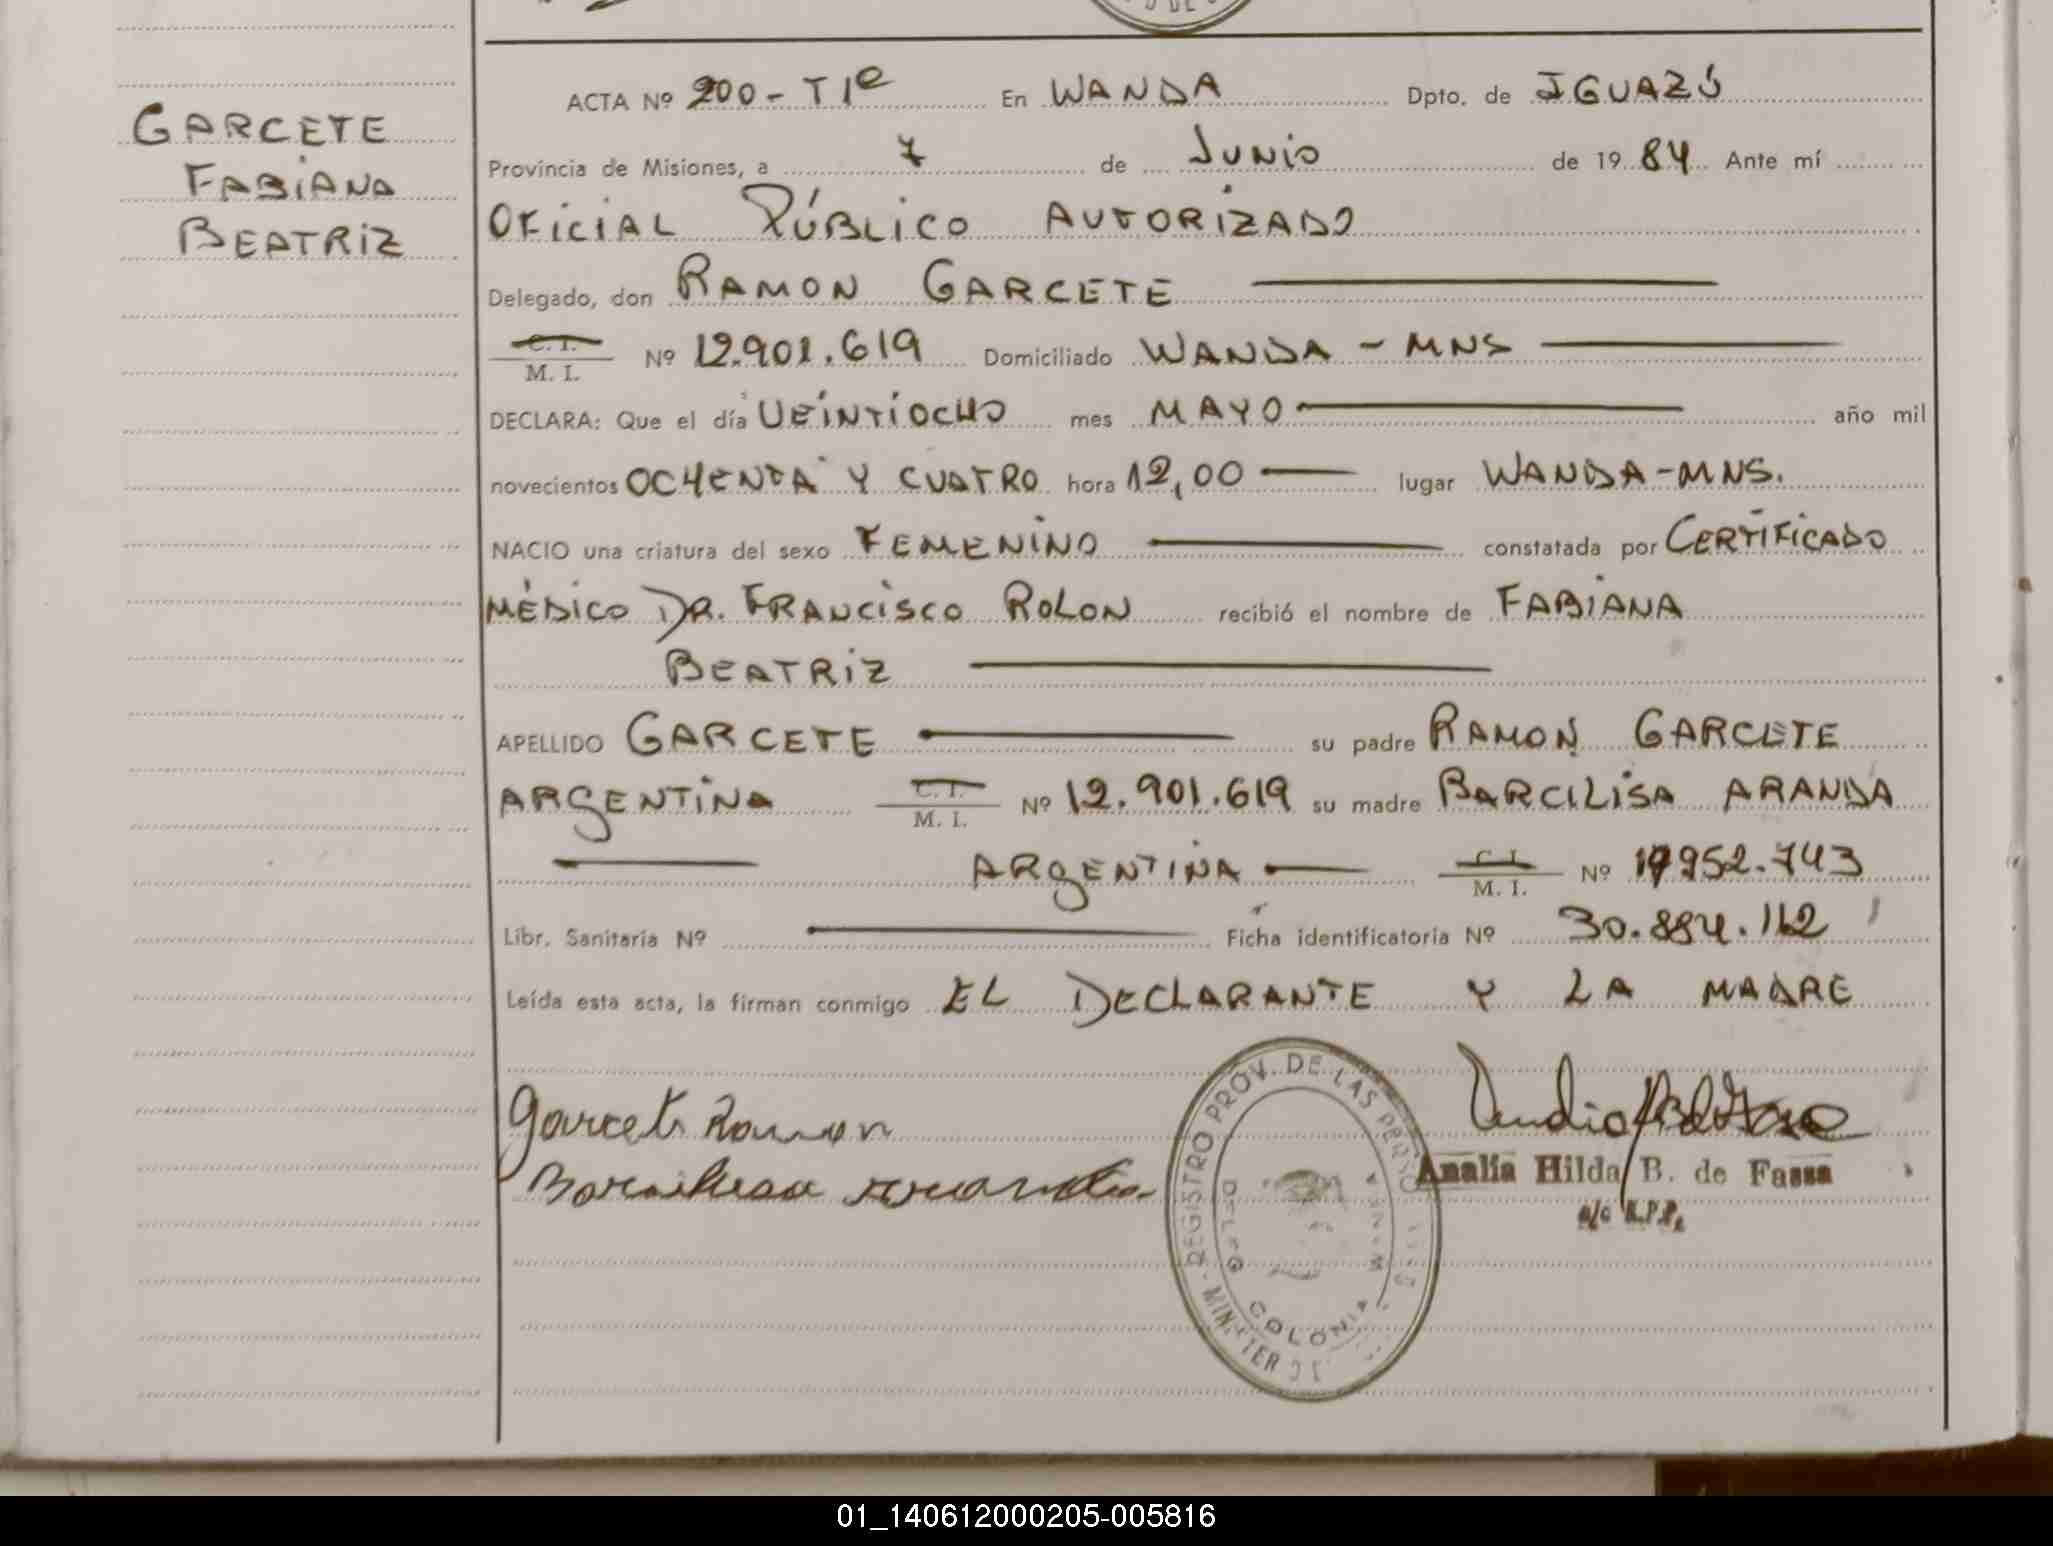 GARCETE
FABIANA
BEATRIZ
ACTA Nº 200 - T1e En WANDA Dpto. de IGUAZÚ
Provincia de Misiones, a 7 de JUNIO de 19 84 Ante mí
OFICIAL PÚBLICO AUTORIZADO
Delegado, don RAMON GARCETE
C. I.
M. I. Nº 12.901.619 Domiciliado WANDA - MNS
DECLARA: Que el día VEINTIOCHO mes MAYO año mil
novecientos OCHENTA Y CUATRO hora 12,00 lugar WANDA - MNS.
NACIO una criatura del sexo FEMENINO constatada por CERTIFICADO
MÉDICO DR. FRANCISCO ROLON recibió el nombre de FABIANA
BEATRIZ
APELLIDO GARCETE su padre RAMON GARCETE
ARGENTINA C. I. M. I. Nº 12.901.619 su madre BARCILISA ARANDA
ARGENTINA C. I. M. I. Nº 17952.743
Libr. Sanitaria Nº Ficha identificatoria Nº 30.884.162
Leída esta acta, la firman conmigo EL DECLARANTE Y LA MADRE
Garcete Ramon
REGISTRO PROV. DE LAS PERSO
COLONIA
Analia Hilda B. de Fassa
a/c R.P.P.
01_140612000205-005816